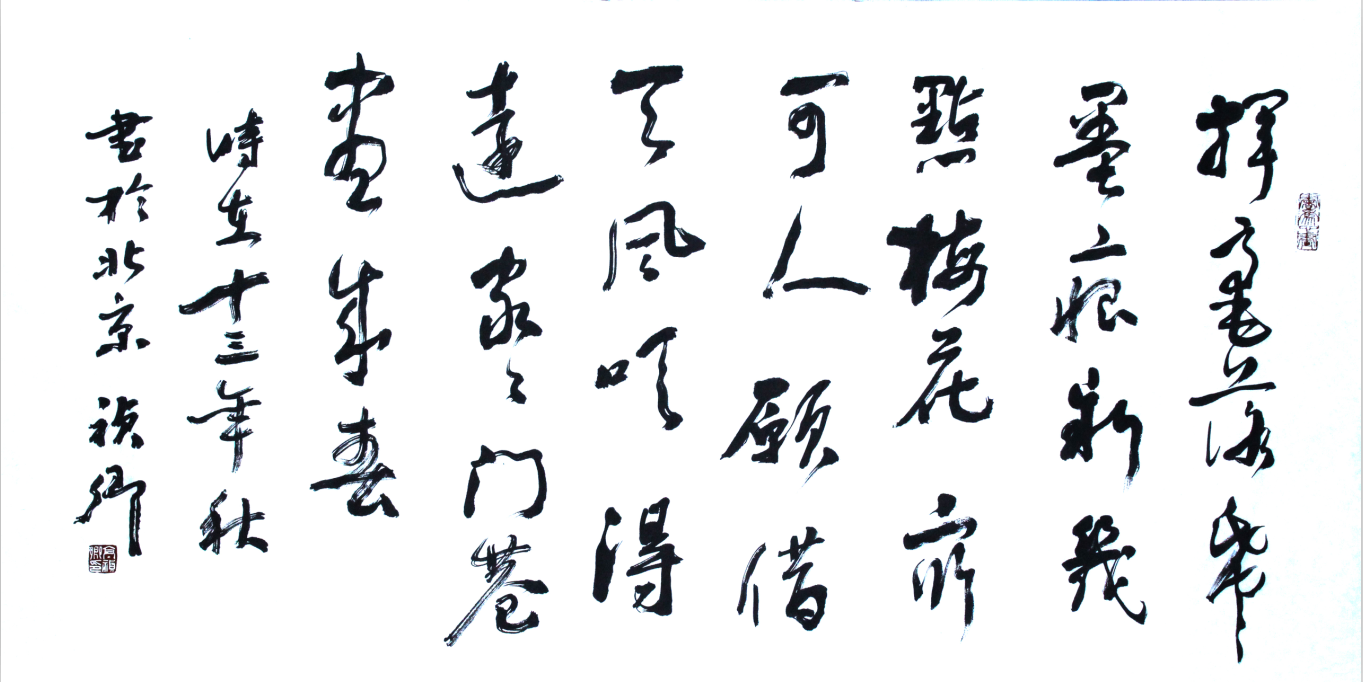 揮毫落紙
墨痕新幾
點梅花最
可人願借
天風吹得
遠家々门巷
盡成春
時在十三年秋
書於北京 禎卿